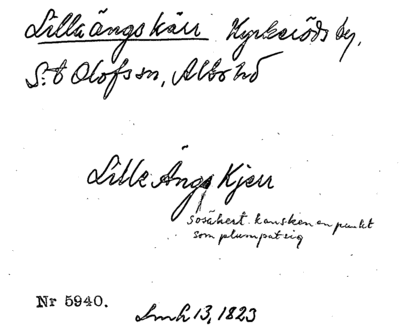 Lilla ängskärr Kyrkeröds by,
S:t Olofs sn, Albo hd
Lille Ängs Kjerr
osäkert kansken en punkt
som plumpat sig
Nr 5940.
Lmh 13, 1823